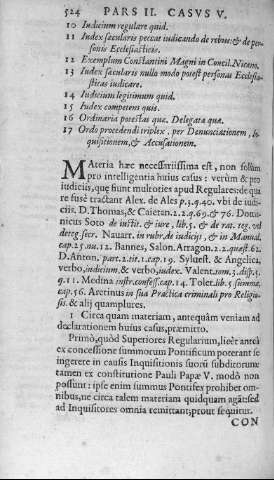 524 PARS II. CASVS V.
10 Iudicium regulare quid.
11 Iudex sæcularis peccat iudicando de rebus:& de per-
sonis Ecclesiasticis.
12 Exemplum Constantini Magni in Concil. Niceno.
13 Iudex sæcularis nullo modo potest personas Ecclesia-
sticas iudicare.
14 Iudicium legitimum quid.
15 Iudex competens quis.
16 Ordinaria potestas quæ. Delegata quæ.
17 Ordo procedendi triplex, per Denunciationem, In-
quisitionem,& Accusationem.
Materia hæc necessariissima est, non solùm
pro intelligentia huius casus: verùm & pro
iudiciis, quę sunt multoties apud Regulares:de qua
re fusè tractant Alex. de Ales p.3.q.40. vbi de iudi-
ciis. D.Thomas,& Caietan.2.2.q.69.& 76. Domi-
nicus Soto de iustit. & iure, lib.5. & de rat. teg. vel
deteg.secr. Nauarr. in rubr. de iudiciis, & in Manual.
cap.25.nu.12. Bannes, Salon. Arragon.2.2.quæst.62.
D.Anton. part.2.tit.1.cap.19. Syluest. & Angelica,
verbo,iudicium,& verbo,iudex. Valent.tom.3.disp.5.
q.11. Medina instr.confess.cap.14. Tolet.lib.5.summæ,
cap.56. Aretinus in sua Practica criminali pro Religio-
sis. & alij quamplures.
1 Circa quam materiam, antequàm veniam ad
declarationem huius casus,præmitto.
Primò,quòd Superiores Regularium,licèt anteà
ex concessione summorum Pontificum poterant se
ingerere in causis Inquisitionis suorū subditorum:
tamen ex constitutione Pauli Papæ V. modò non
possunt: ipse enim summus Pontifex prohibet om-
nibus,ne circa talem materiam quidquam agāt:sed
ad Inquisitores omnia remittant;prout sequitur.
CON